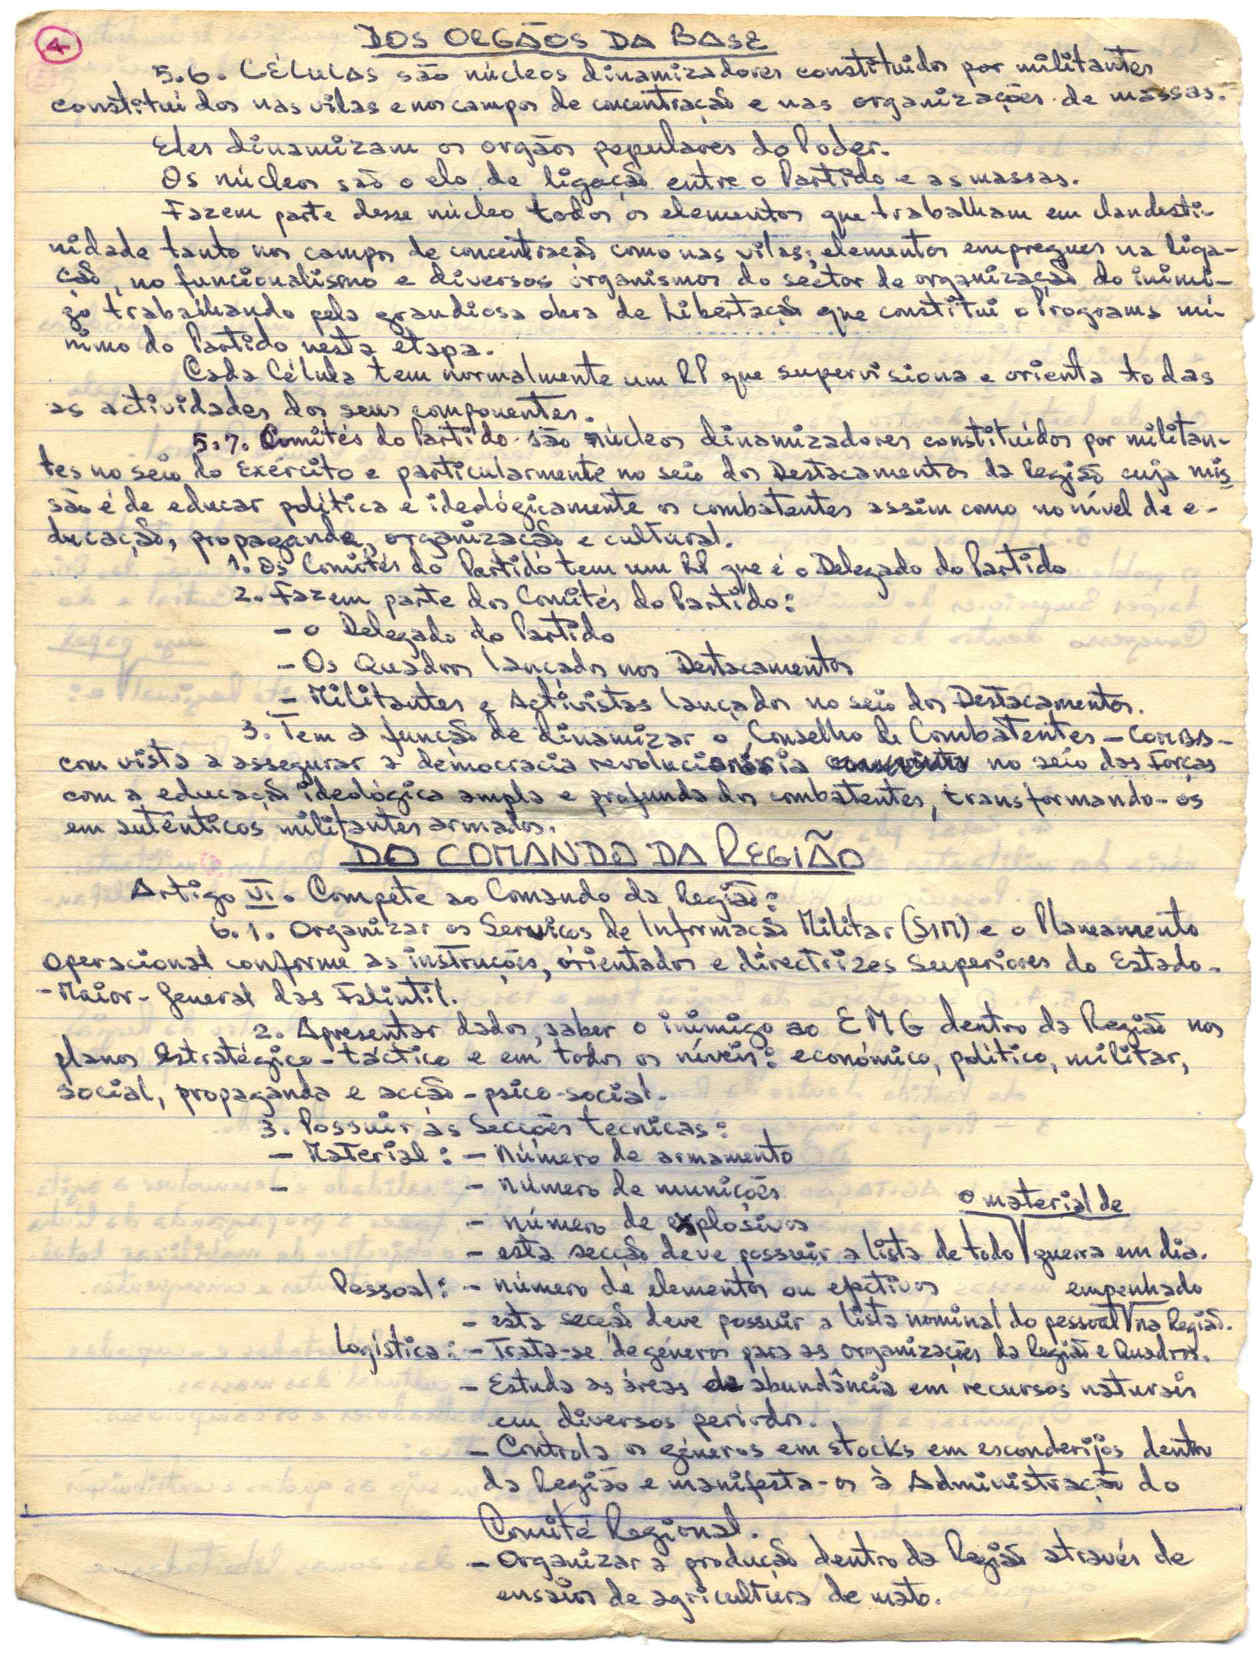 4
DOS ORGÃOS DA BASE
5.6. CÉLULAS são núcleos dinamizadores constituidos por militantes
constituídos nas vilas e nos campos de concentração e nas organizações de massas.
Eles dinamizam os orgãos populares do Poder.
Os núcleos são o elo de ligação entre o Partido e as massas.
Fazem parte desse núcleo todos os elementos que trabalham em clandesti-
nidade tanto nos campos de concentração como nas vilas; elementos empregues na liga-
ção, no funcionalismo e diversos organismos do sector de organização do inimi-
go trabalhando pela grandiosa obra de Libertação que constitui o Programa mí-
nimo do Partido nesta etapa.
Cada Célula tem normalmente um RP que supervisiona e orienta todas
as actividades dos seus componentes.
5.7. Comités do Partido são núcleos dinamizadores constituídos por militan-
tes no seio do Exército e particularmente no seio dos Destacamentos da Região cuja mis
são é de educar política e ideológicamente os combatentes assim como no nível de e-
ducação, propaganda, organização e cultural.
1. Os Comités do Partido tem um RP que é o Delegado do Partido
2. Fazem parte dos Comités do Partido:
- O Delegado do Partido
- Os Quadros lançados nos Destacamentos
- Militantes e Activistas lançados no seio dos Destacamentos.
3. Tem a função de dinamizar o Conselho de Combatentes -
com vista a assegurar a democracia revolucionária no seio das Forças
com a educação ideológica ampla e profunda dos combatentes, transformando-os
em autênticos militantes armados.
DO COMANDO DA REGIÃO
Artigo VI. Compete ao Comando da Região:
6.1. Organizar os Serviços de Informação Militar (SIM) e o Planeamento
Operacional conforme as instruções, orientados e directrizes Superiores do Estado-
-Maior-General das Falintil.
2. Apresentar dados, saber o inimigo ao EMG dentro da Região nos
planos Estratégico-táctico e em todos os níveis: económico, político, militar,
social, propaganda e acção-psico-social.
3. Possuir as Secções técnicas:
- Material: - Número de armamento
- - Número de munições
- Número de explosivos
o material de
- esta secção deve possuir a lista de todo guerra em dia.
Pessoal: - número de elementos ou efectivos
empenhado
- esta secção deve possuir a lista nominal do pessoal na Região.
Logística: - Trata-se de géneros para as organizações da Região e Quadros.
- Estuda as áreas de abundância em recursos naturais
em diversos períodos.
- Controla os géneros em stocks em esconderijos dentro
da Região e manifesta-os à Administração do
Comité Regional.
- Organizar a produção dentro da Região através de
ensaios de agricultura de mato.